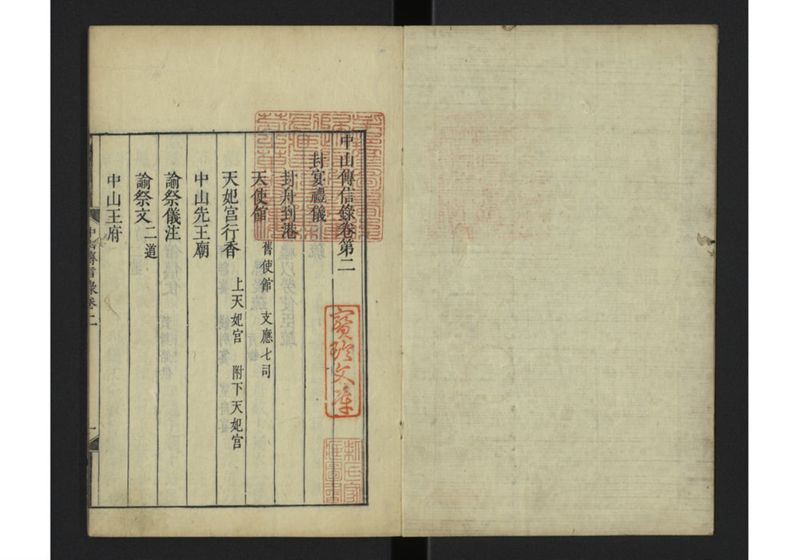 中山傳信錄卷第二
封宴禮儀
封舟到港
天使館 舊使館 支應七司
天妃宮行香 上天妃宮 附下天妃宮
中山先王廟
諭祭儀注
諭祭文 二道
中山王府
中山傳信錄卷二
一
寶玲文庫